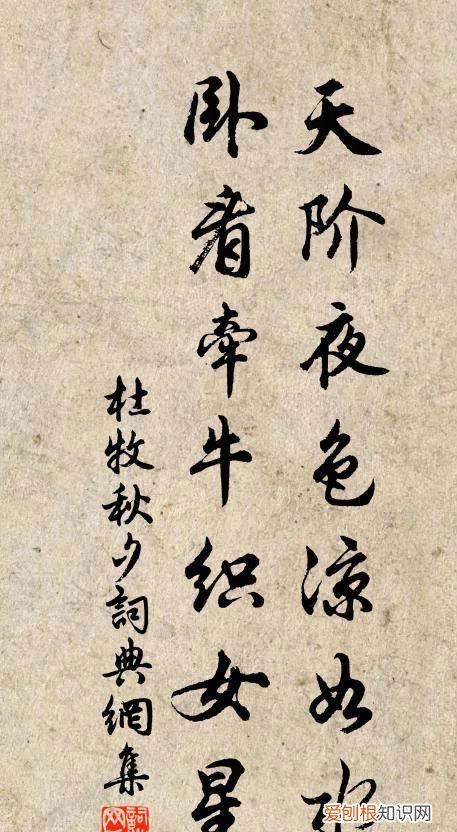 天阶夜色凉如水
卧看牵牛织女星
杜牧秋夕詞典網集
爱刨根知识网